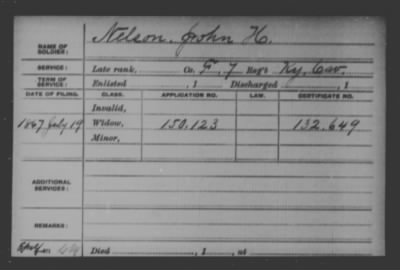 NAME OF SOLDIER: Nelson, John H.
SERVICE: Late rank, Co. F, 7 Reg't Ky. Cav.
TERM OF SERVICE: Enlisted , 1 Discharged , 1
DATE OF FILING. CLASS. APPLICATION NO. LAW. CERTIFICATE NO.
Invalid,
1867 July 19 Widow, 150.123 132.649
Minor,
ADDITIONAL SERVICES:
REMARKS:
Died , 1 , at